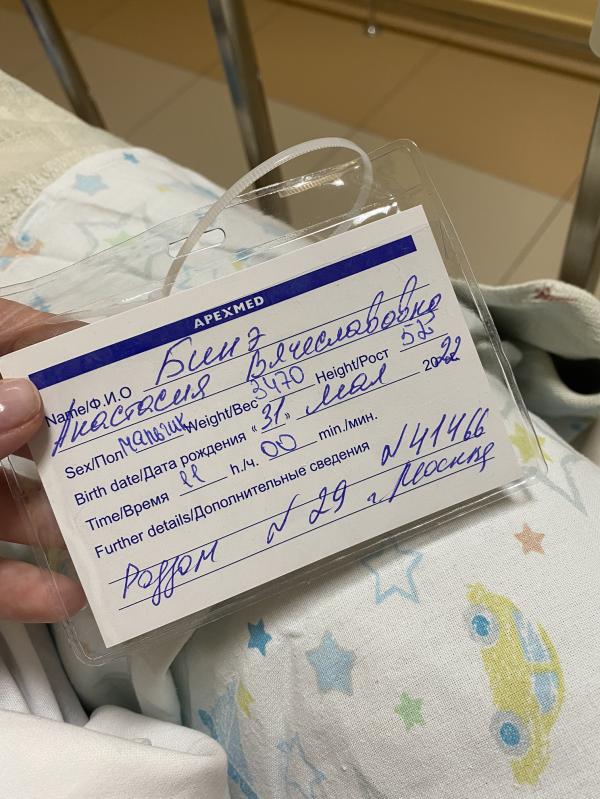 APEXMED
Name/Ф.И.О Бинэ
Анастасия Вячеславовна
Sex/Пол мальчик Weight/Вес 3470 Height/Рост 52
Birth date/Дата рождения "31" мая 2022
Time/Время 11 h./ч. 00 min./мин.
Further details/Дополнительные сведения N 41466
Роддом N 29 г. Москва